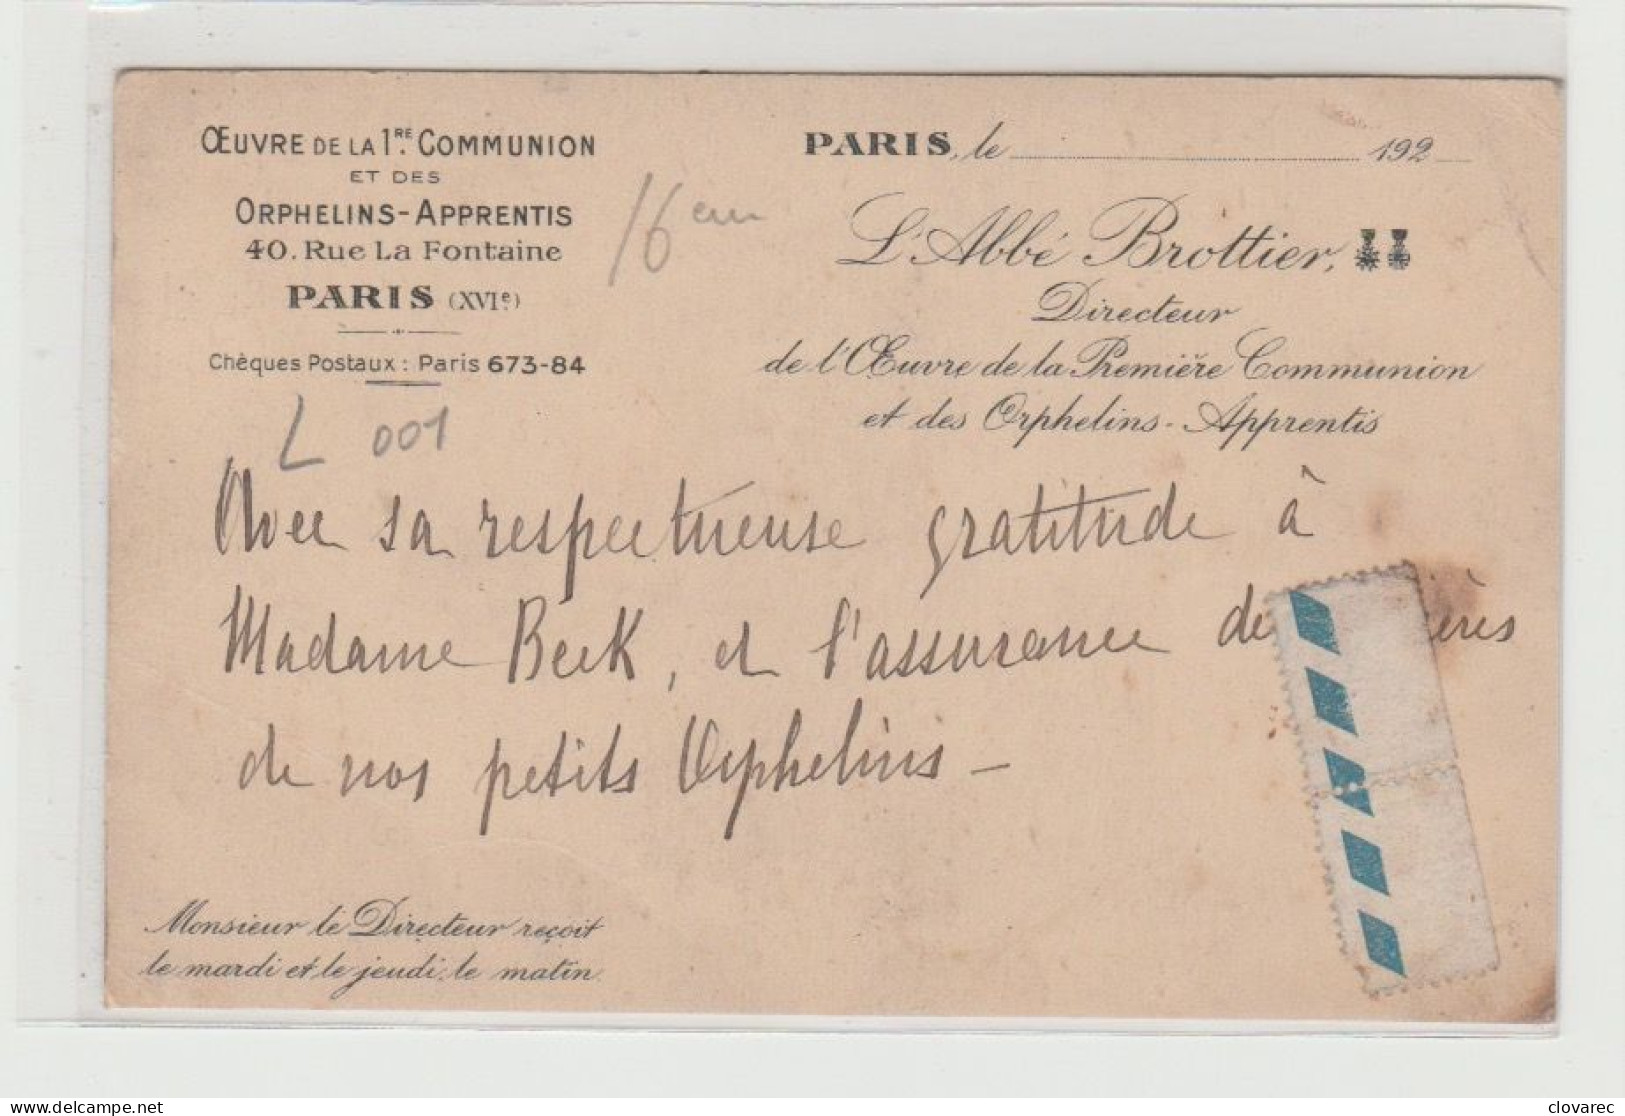 ŒUVRE DE LA 1RE COMMUNION
ET DES
ORPHELINS-APPRENTIS
40. Rue La Fontaine
PARIS (XVIe)
Chèques Postaux : Paris 673-84
PARIS, le 192
L'Abbé Brottier,
Directeur
de l'Œuvre de la Première Communion
et des Orphelins-Apprentis
16em
L 001
Avec sa respectueuse gratitude à
Madame Beck, et l'assurance de
de nos petits Orphelins -
Monsieur le Directeur reçoit
le mardi et le jeudi, le matin.
delcampe.net
clovarec